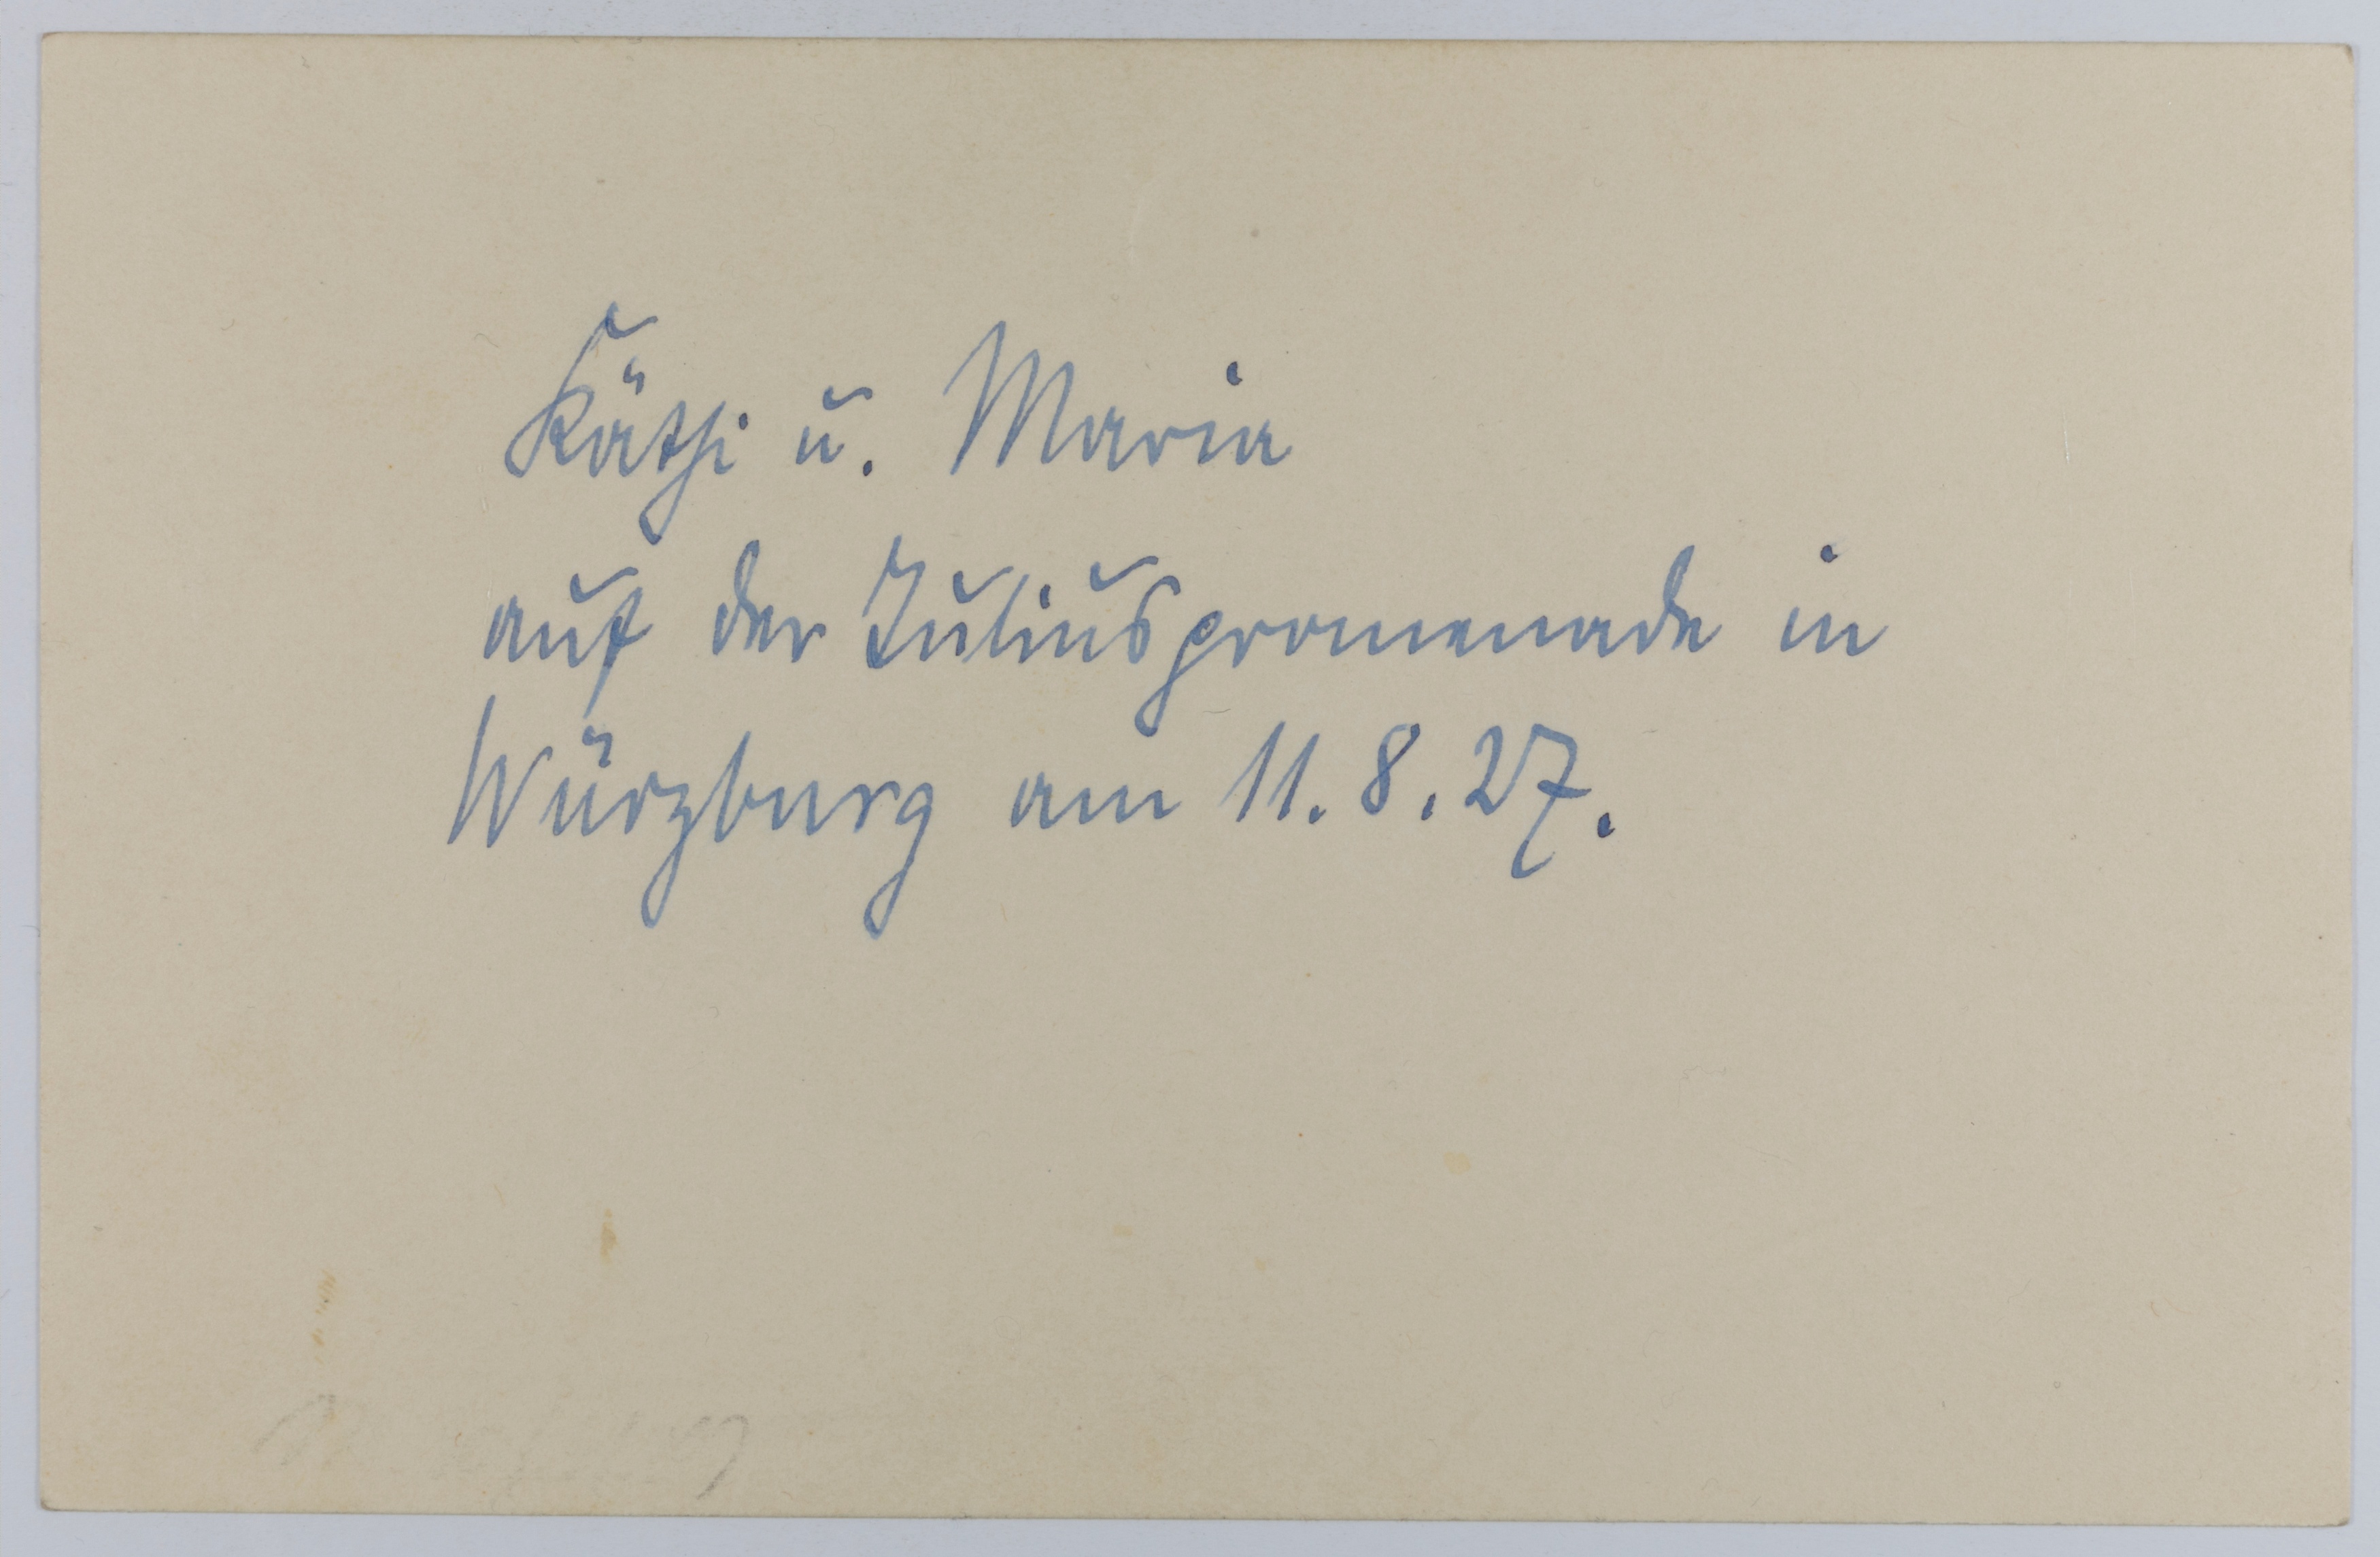 Käthi u. Maria
auf der Juliuspromenade in
Würzburg am 11.8.27.